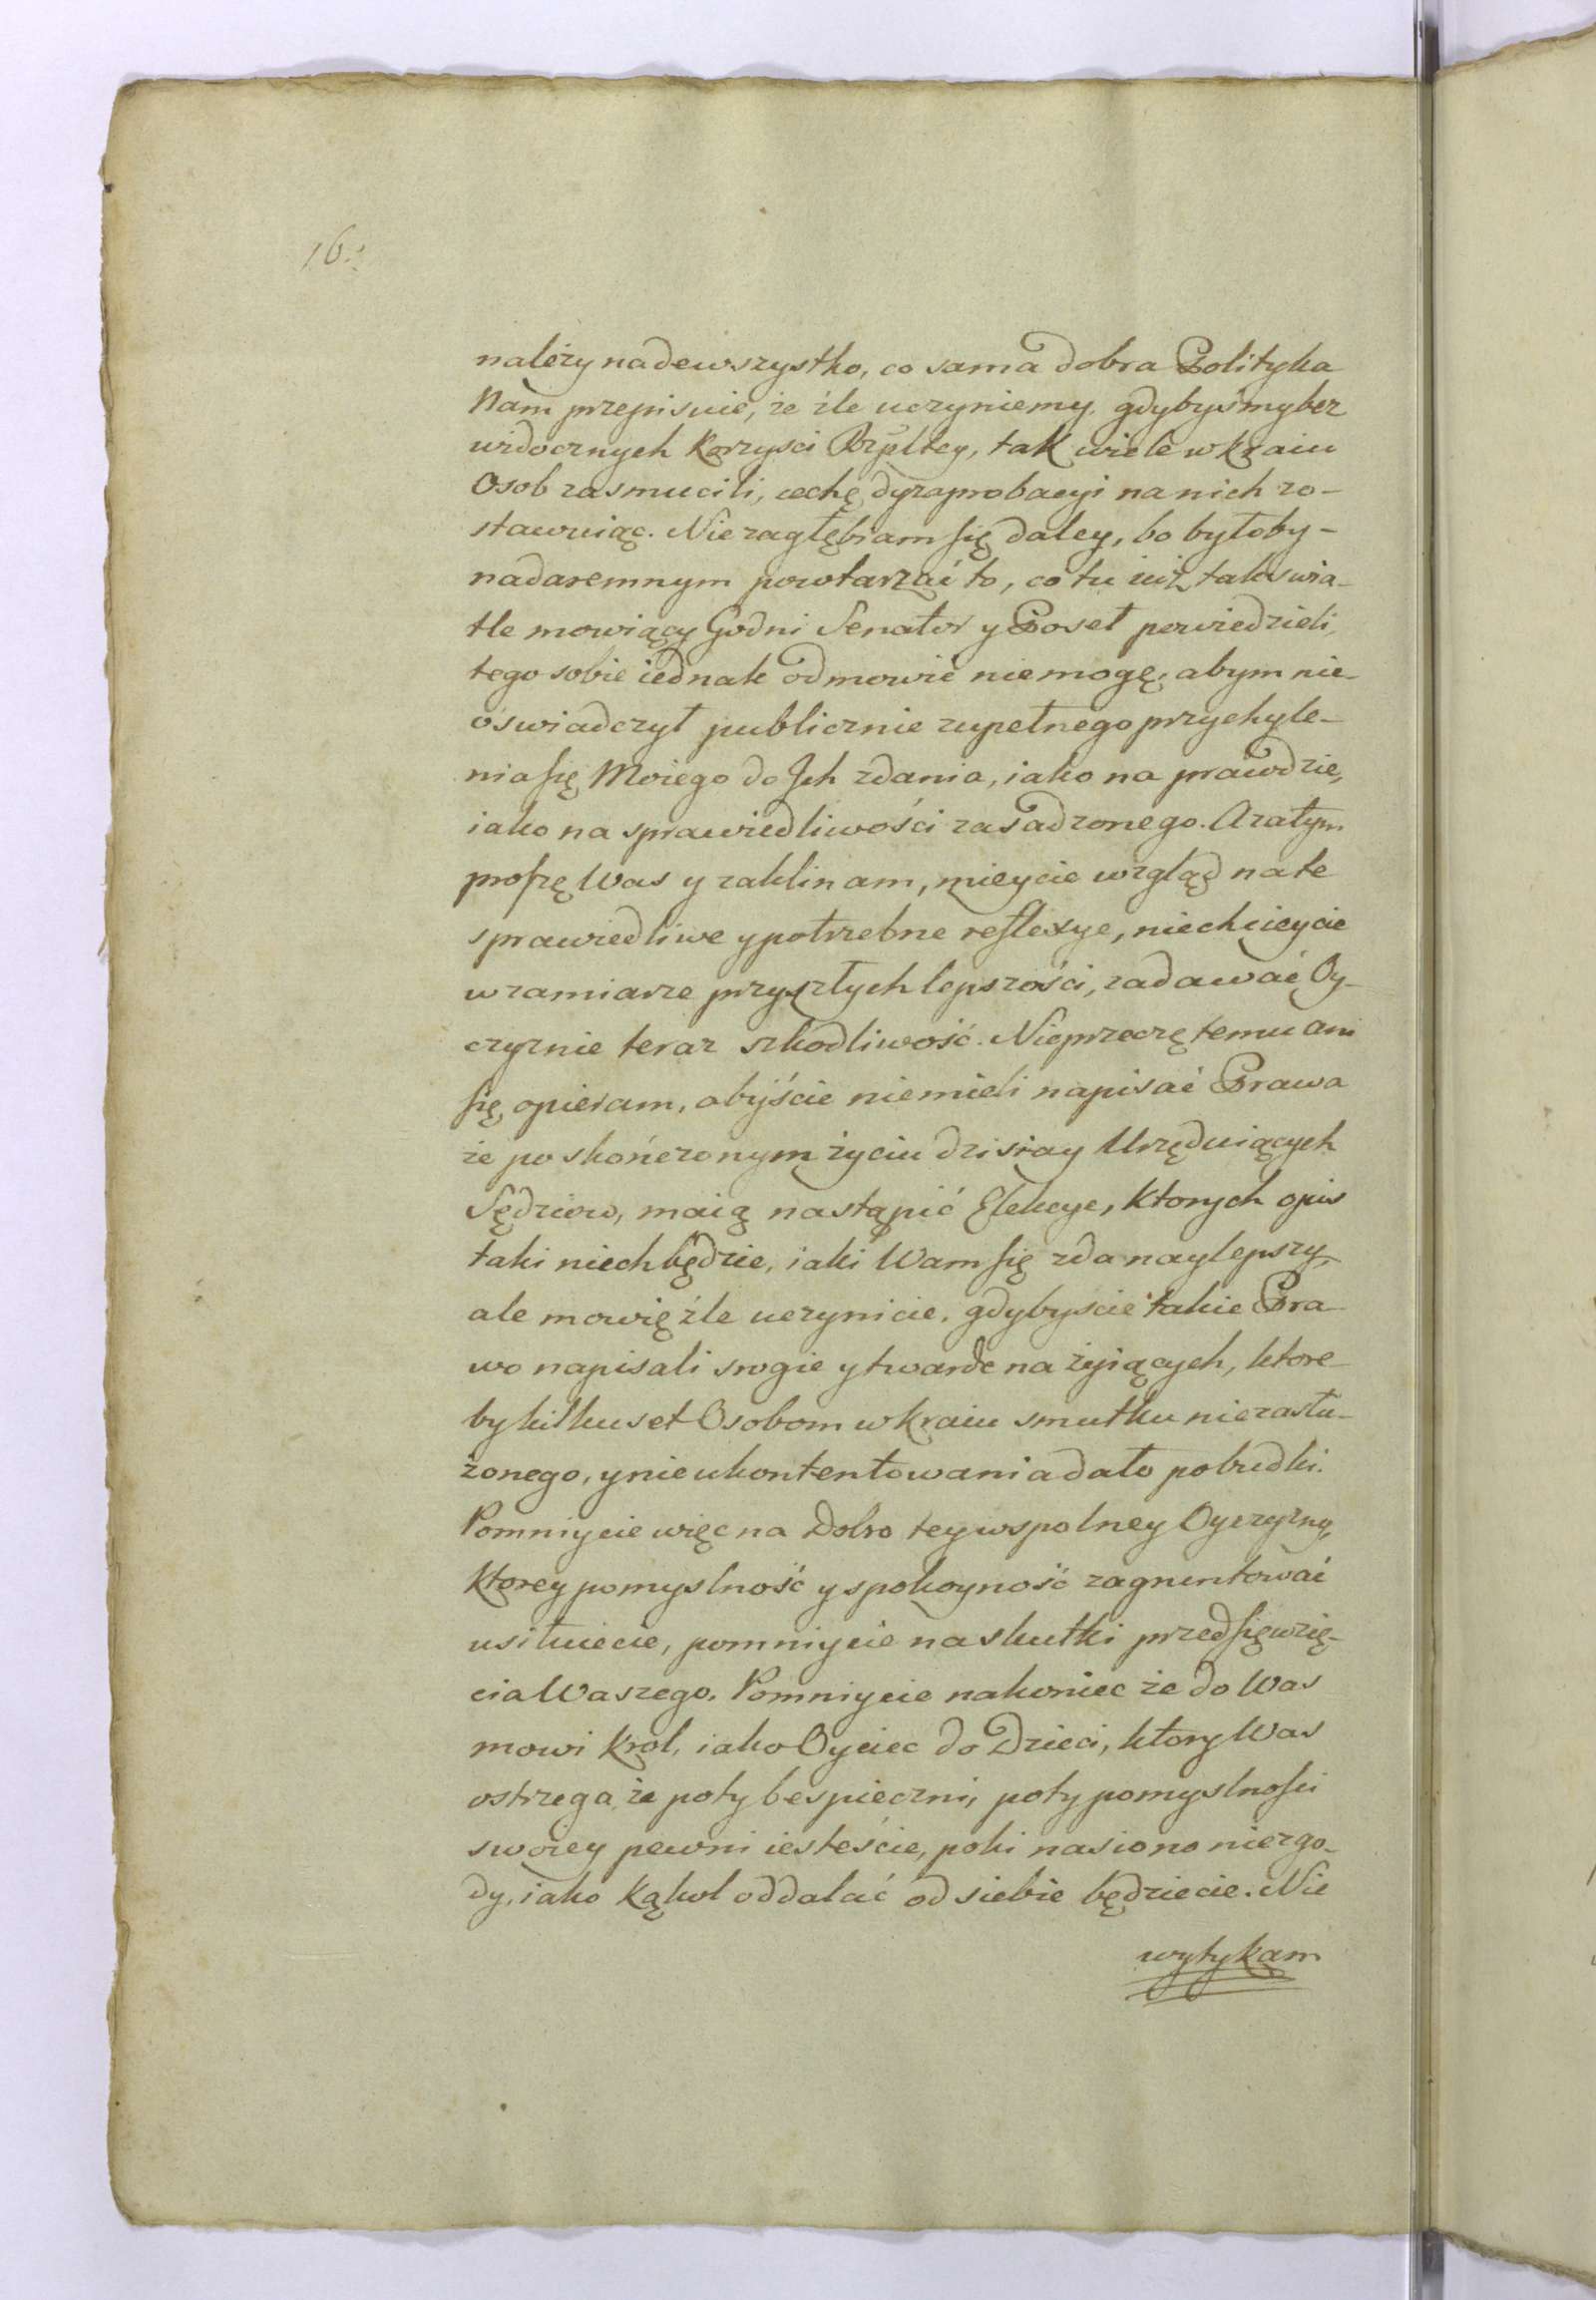 16.
należy nadewszystko, co sama dobra Polityka
Nam przepisuie, że źle uczyniemy, gdybyśmy bez
widocznych Korzysci Rzpltey, tak wiele w kraiu
Osob zasmucili, cechę dyzaprobacyi na nich zo-
stawuiąc. Nie zagłębiam się daley, bo byłoby-
nadaremnym powtarzać to, co tu iuż tak swia-
tle mowiący Godni Senator y Poseł powiedzieli,
tego sobie iednak odmowić niemogę, abym nie-
oswiadczył publicznie zupełnego przychyle-
nia się Moiego do Jch zdania, iako na prawdzie,
iako na sprawiedliwości zasadzonego. A zatym
proszę Was y zaklinam, mieycie wzgląd na te
sprawiedliwe y potrzebne reflexye, niechcieycie
w zamiarze przyszłych lepszości, zadawać Oy-
czyznie teraz szkodliwość. Nieprzeczę temu ani
się opieram, abyście niemieli napisać Prawa
że po skończonym życiu dzisiay Urzęduiących
Sędziow, maią nastąpić Elekcye, Ktorych opis
taki niech będzie, iaki Wam się zda naylepszy,
ale mowię źle uczynicie, gdybyscie takie Pra-
wo napisali srogie y twarde na żyiących, ktore-
by kilkuset Osobom w kraiu smutku niezasłu-
żonego, y nieukontentowania dało pobudki.
Pomniycie więc na Dobro tey wspolney Oyczyzny,
Ktorey pomyslność y spokoyność zagruntować
usiłuiecie, pomniycie na skutki przedsięwzię-
cia Waszego. Pomniycie nakoniec że do Was
mowi Krol, iako Oyciec do Dzieci, ktory Was
ostrzega że poty bespieczni, poty pomyslnosci
swoiey pewni iesteście, poki nasiono niezgo-
dy, iako Kąkol oddalać od siebie będziecie. Nie
wytykam